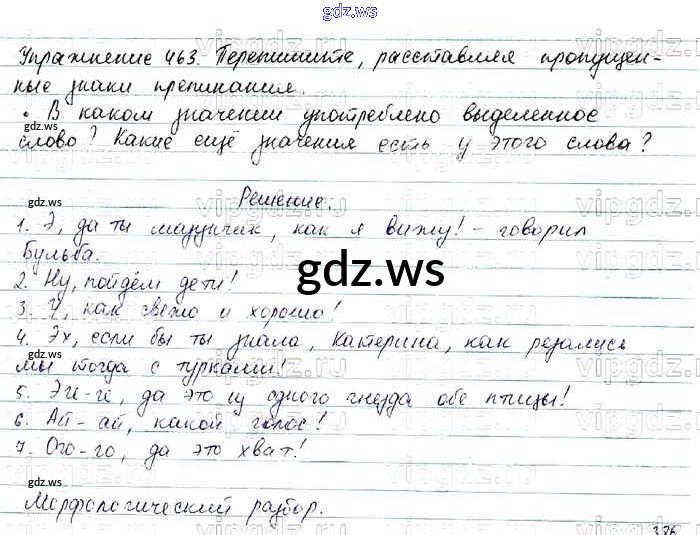 gdz.ws
Упражнение 463. Перепишите, расставляя пропущен-
ные знаки препинания.
• В каком значении употреблено выделенное
слово? Какие ещё значения есть у этого слова?
Решение.
1. Э, да ты мазунчик, как я вижу! - говорил
Бульба.
2. Ну, пойдём дети!
3. У, как свежо и хорошо!
4. Эх, если бы ты знала, Катерина, как резались
мы тогда с турками!
5. Эге-ге, да это из одного гнезда обе птицы!
6. Ай-ай, какой голос!
7. Ого-го, да это хват!
Морфологический разбор.
gdz.ws
386